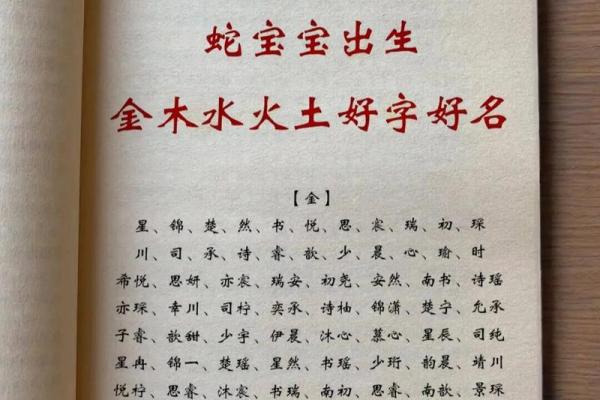 蛇宝宝出生
金木水火土好字好名
【金】
星、锦、楚、然、书、悦、思、宸、瑞、初、琛
川、司、承、诗、睿、歆、少、晨、心、瑜、时
希悦、思妍、亦宸、瑞安、初尧、安然、南书、诗瑶
亦琛、幸川、司柠、奕承、诗柚、锦潇、楚宁、允承
子睿、歆甜、少宇、伊晨、沐心、慕心、星辰、司纯
星冉、锦一、楚瑶、星然、书瑶、少珩、韵晨、靖川
悦柠、思睿、沐宸、书瑞、南初、思睿、南歆、景琛